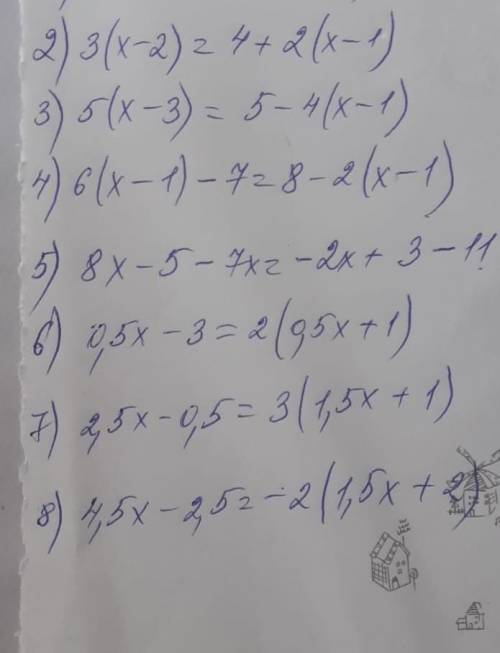 2) 3(x-2) = 4 + 2(x-1)
3) 5(x-3) = 5 - 4(x-1)
4) 6(x-1) - 7 = 8 - 2(x-1)
5) 8x - 5 - 7x = -2x + 3 - 11
6) 0,5x - 3 = 2(0,5x + 1)
7) 2,5x - 0,5 = 3(1,5x + 1)
8) 4,5x - 2,5 = -2(1,5x + 2)